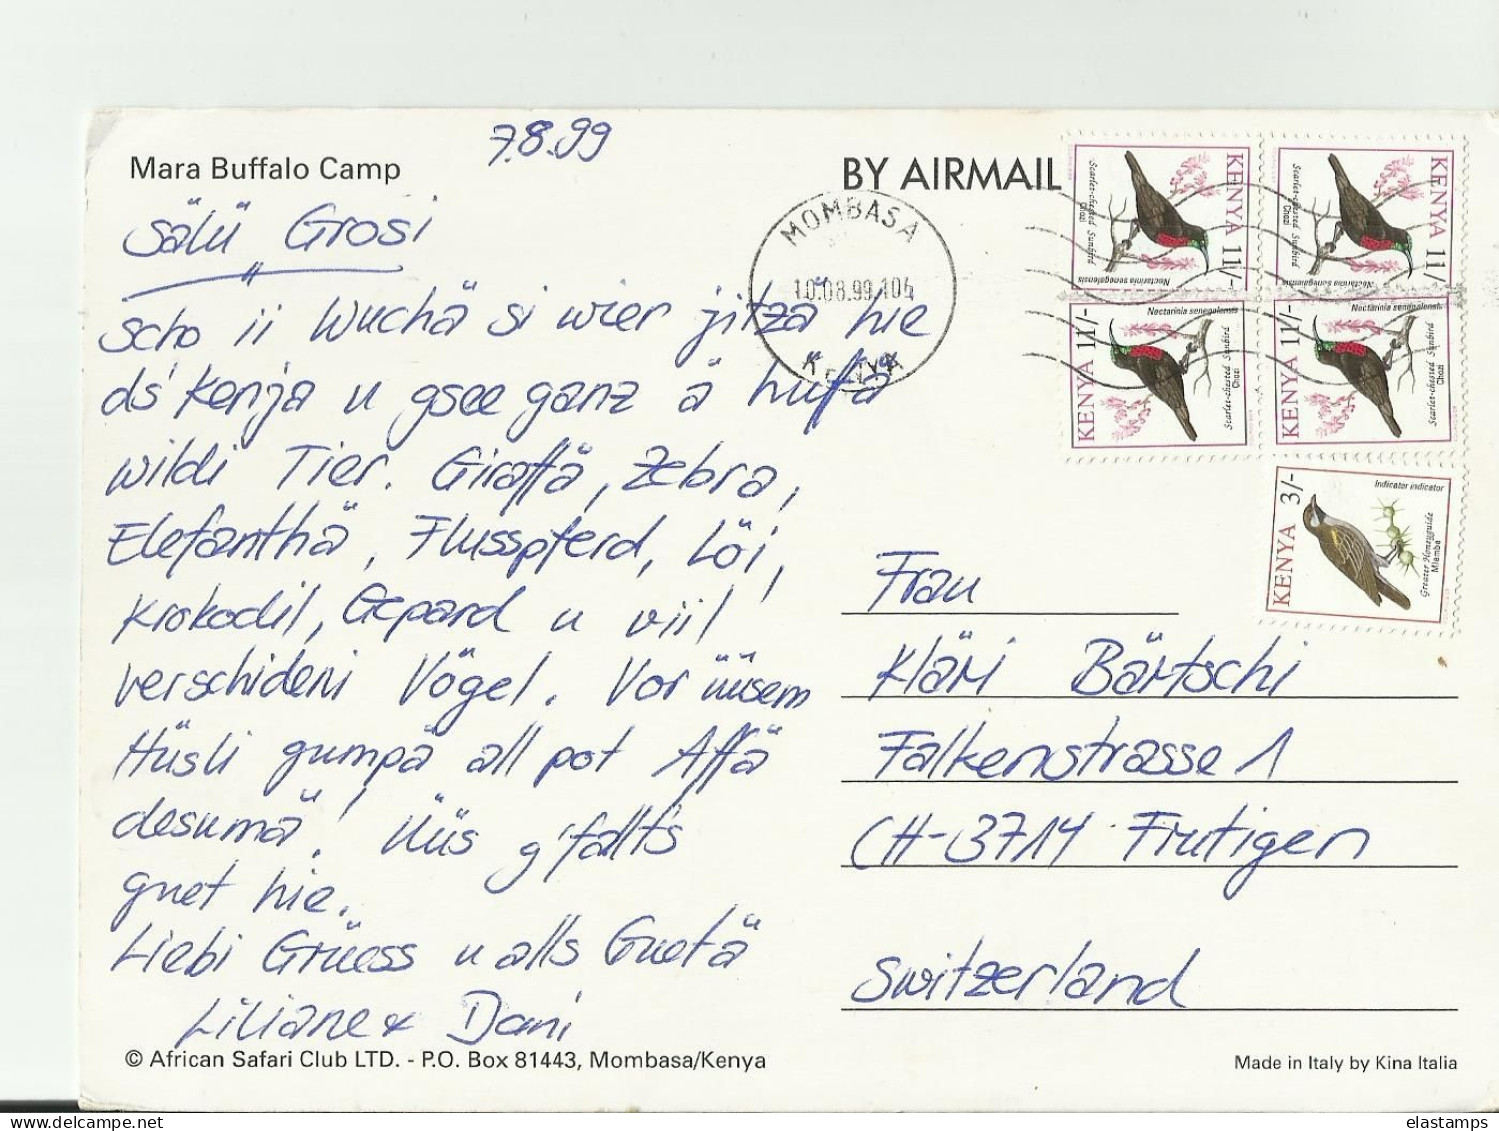 7.8.99
Mara Buffalo Camp
BY AIRMAIL
Sälü Grosi
scho ii Wuchä si wier jitzä hie
ds' Kenja u gsee ganz ä hüffä
wildi Tier. Giraffä, Zebra,
Elefanthä, Flusspferd, Löi,
Krokodil, Gepard u viil
verschideni Vögel. Vor üüsem
Hüsli gumpä all pot Affä
desumä! Üüs g'fallt's
guet hie.
Liebi Grüess u alls Guetä
Liliane & Dani
© African Safari Club LTD. - P.O. Box 81443, Mombasa/Kenya
MOMBASA
10.08.99.104
KENYA
KENYA 11/-
Scarlet-chested Sunbird
Chozi
Nectarinia senegalensis
KENYA 11/-
Scarlet-chested Sunbird
Chozi
Nectarinia senegalensis
KENYA 11/-
Nectarinia senegalensis
Scarlet-chested Sunbird
Chozi
KENYA 11/-
Nectarinia senegalensis
Scarlet-chested Sunbird
Chozi
KENYA 3/-
Indicator indicator
Greater Honeyguide
Mlembe
Frau
Kläri Bärtschi
Falkenstrasse 1
CH-3714 Frutigen
Switzerland
Made in Italy by Kina Italia
elastamps